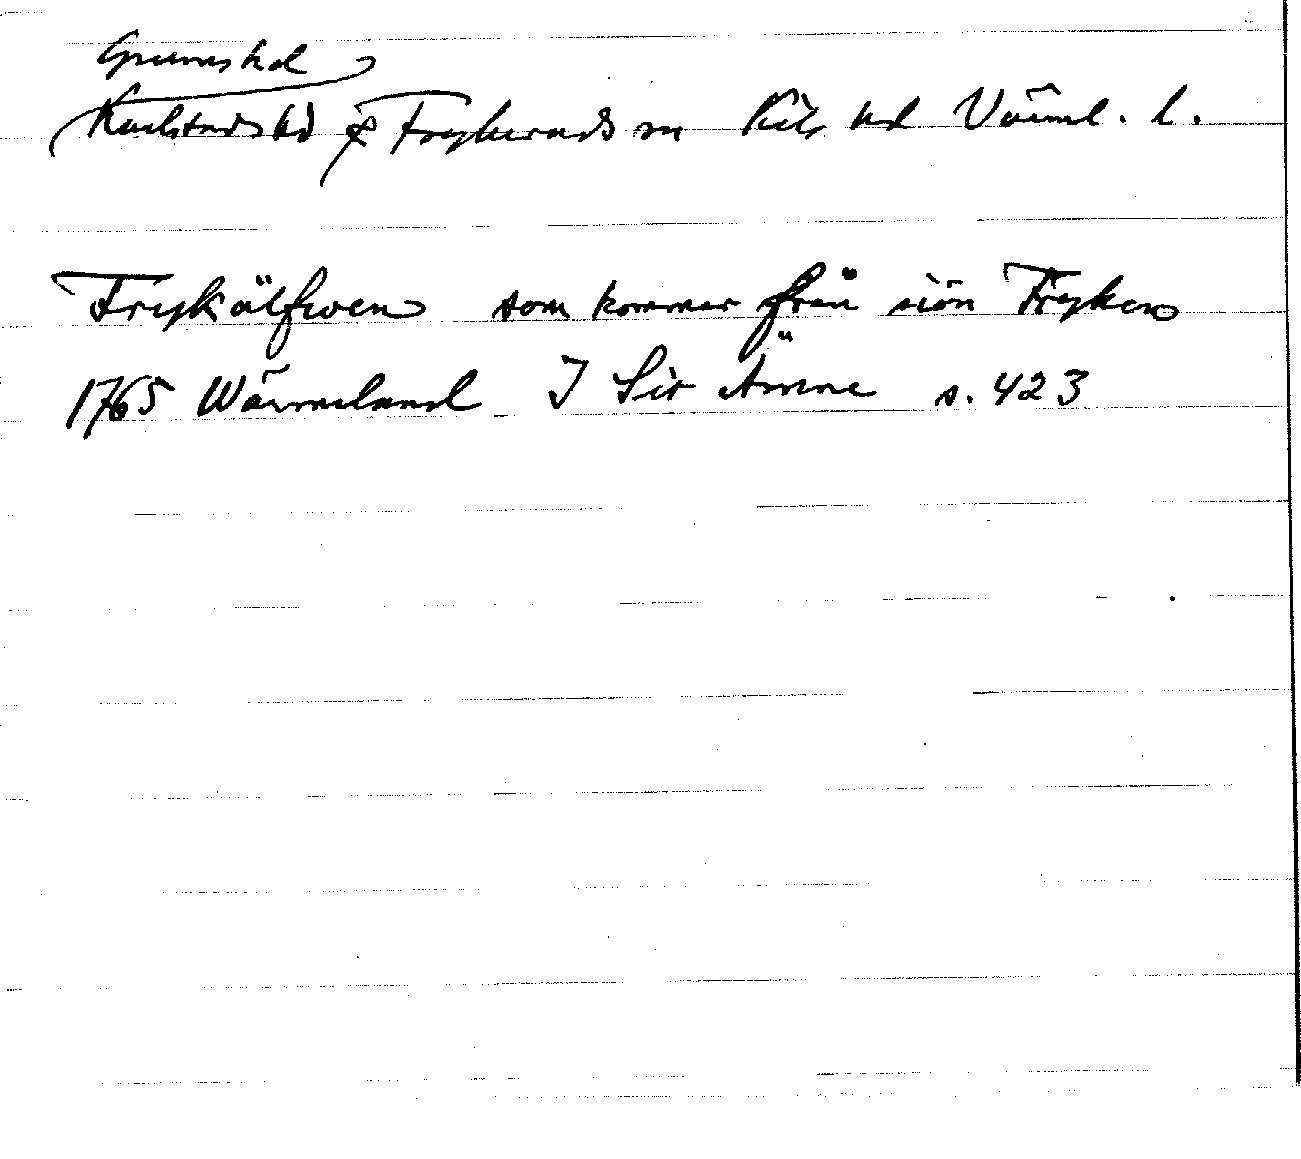 Grums hd
Karlstads hd & Fryksände sn Kils hd Värml. l.
Frykälfwen som kommer från siön Fryken
1765 Wärmeland I Sit Ämne s. 423